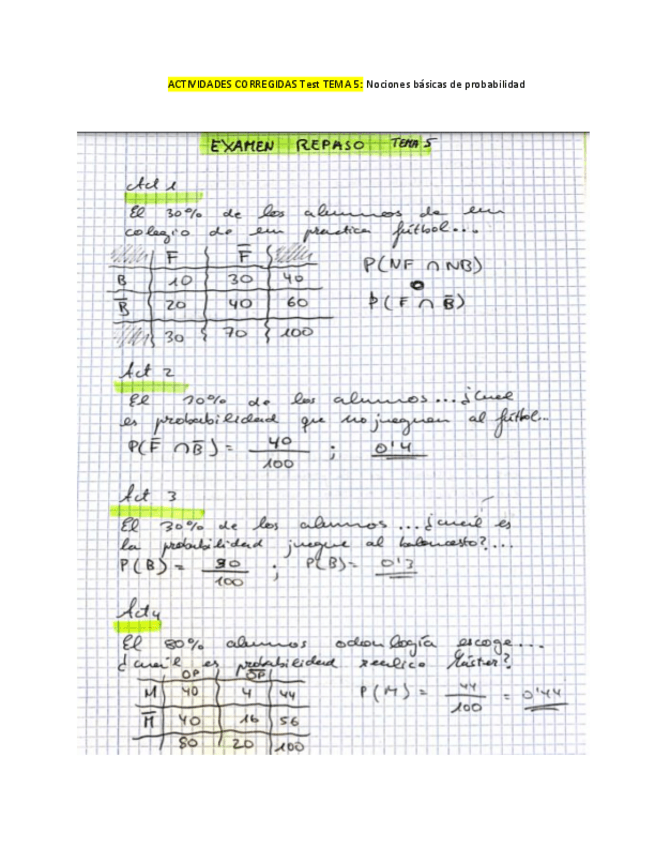 ACTIVIDADES CORREGIDAS Test TEMA 5: Nociones básicas de probabilidad
EXAMEN REPASO TEMA 5
Act 1
El 30% de los alumnos de un
colegio de em practica fútbol...
F F̅
B 10 30 40
B̅ 20 40 60
30 70 100
P(NF ∩ NB)
o
P(F ∩ B̅)
Act 2
El 70% de los alumnos... ¿Cuál
es probabilidad que no jueguen al fútbol...
P(F̅ ∩ B̅) = 40/100 ; 0'4
Act 3
El 30% de los alumnos ... ¿cuál es
la probabilidad juegue al baloncesto?...
P(B) = 30/100 ; P(B) = 0'3
Act 4
El 80% alumnos odontología escoge...
¿cuál es probabilidad realice Máster?
OP O̅P̅
M 40 4 44
M̅ 40 16 56
80 20 100
P(M) = 44/100 = 0'44